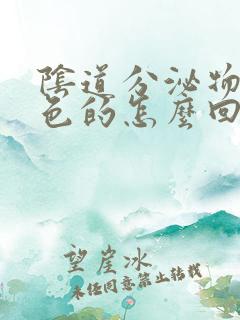 陰道分泌物
色的怎麼回
望崖冰
未经同意禁止转载